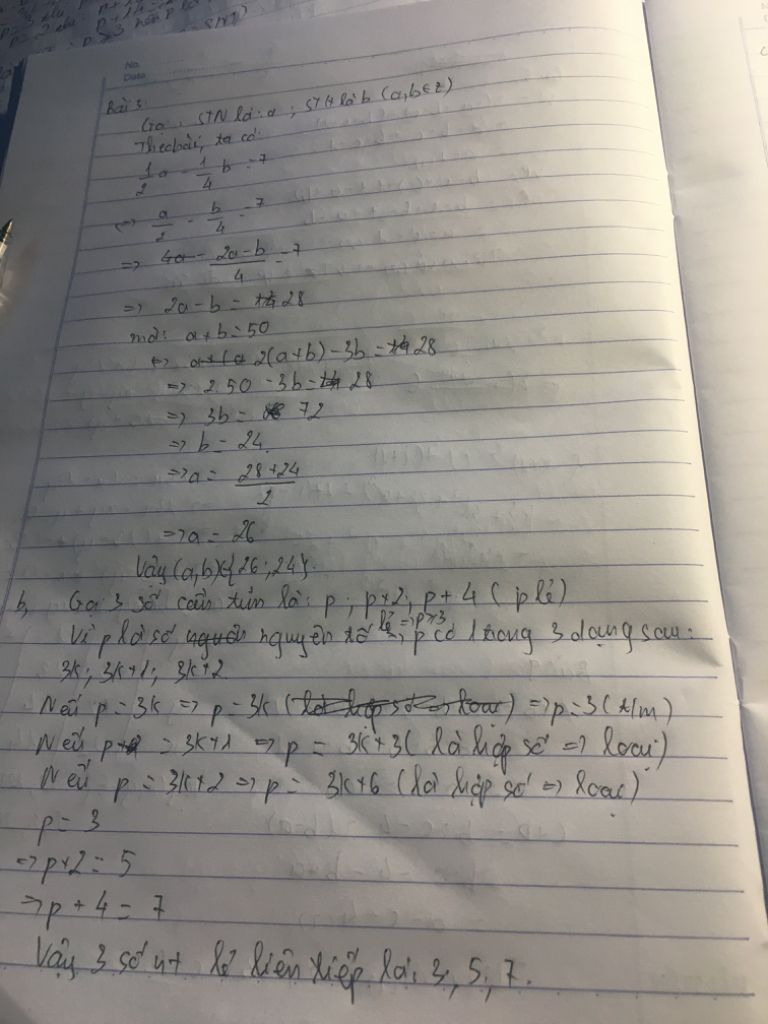 No.
Date
Bài 3:
Gọi STN là: a ; STH là b (a,b∈Z)
Theo bài, ta có:
1/2 a - 1/4 b = 7
<=> a/2 - b/4 = 7
=> (2a-b)/4 = 7
=> 2a - b = 28
mà: a+b = 50
<=> 2(a+b) - 3b = 28
=> 2.50 - 3b = 28
=> 3b = 72
=> b = 24.
=> a = (28+24)/2
=> a = 26
Vậy (a,b)∈{26;24}.
b, Gọi 3 số cần tìm là: p; p+2; p+4 (p lẻ)
Vì p là số nguyên tố lẻ => p≥3 => p có 1 trong 3 dạng sau:
3k; 3k+1; 3k+2
Nếu p = 3k => p = 3k => p = 3 (t/m)
Nếu p = 3k+1 => p = 3k+3 (là hợp số => loại)
Nếu p = 3k+2 => p = 3k+6 (là hợp số => loại)
p = 3
=> p+2 = 5
=> p + 4 = 7
Vậy 3 số nt lẻ liên tiếp là: 3, 5; 7.